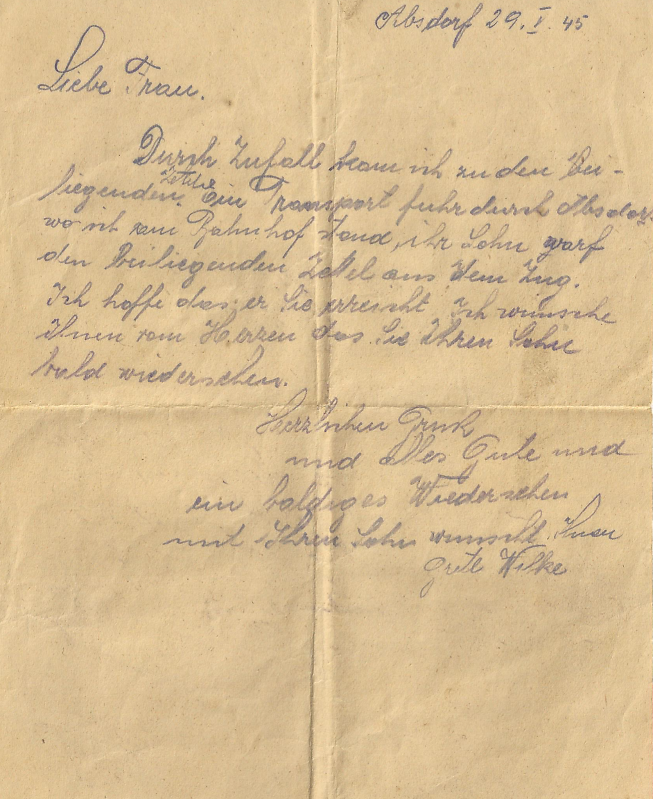 Absdorf 29. V. 45
Liebe Frau.
Durch Zufall kam ich zu den bei-
liegenden Zettel ein Transport fuhr durch Absdorf
wo ich am Bahnhof stand, ihr Sohn warf
den beiliegenden Zettel aus dem Zug.
Ich hoffe das er Sie erreicht. Ich wünsche
Ihnen vom Herzen das Sie Ihren Sohn
bald wiedersehen.
Herzlichen Gruß
und alles Gute und
ein baldiges Wiedersehen
mit Ihren Sohn wünscht Ihnen
Grete Wilke